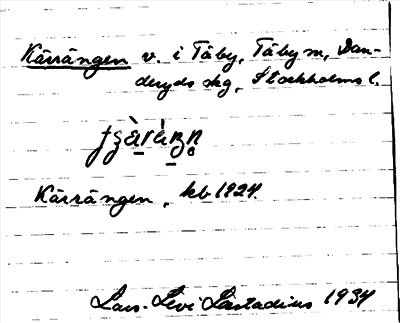 Kärrängen v. i Täby, Täby sn, Dan-
deryds skg, Stockholms l.
Kärrängen, kb 1924.
Lars-Levi Læstadius 1934